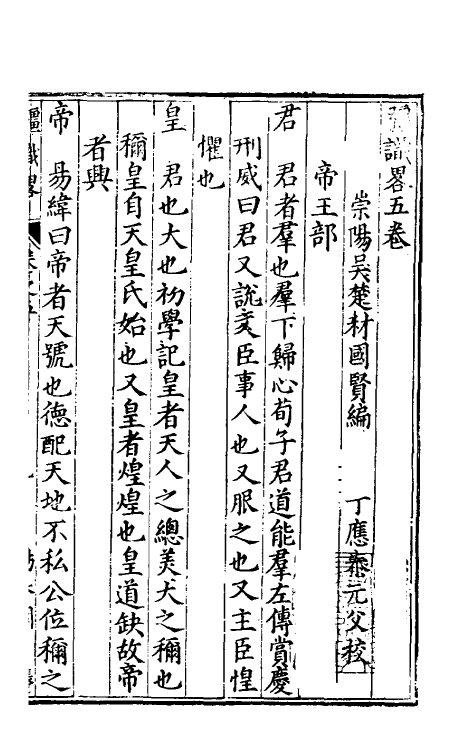 彊識畧五卷
崇陽吳楚材國賢編 丁應泰元父挍
帝王部
君 君者羣也羣下歸心荀子君道能羣左傳賞慶
刑威曰君又說文臣事人也又服之也又主臣惶
懼也
皇 君也大也初學記皇者天人之總美大之稱也
稱皇自天皇氏始也又皇者煌煌也皇道缺故帝
者興
帝 易緯曰帝者天號也德配天地不私公位稱之
彊識畧